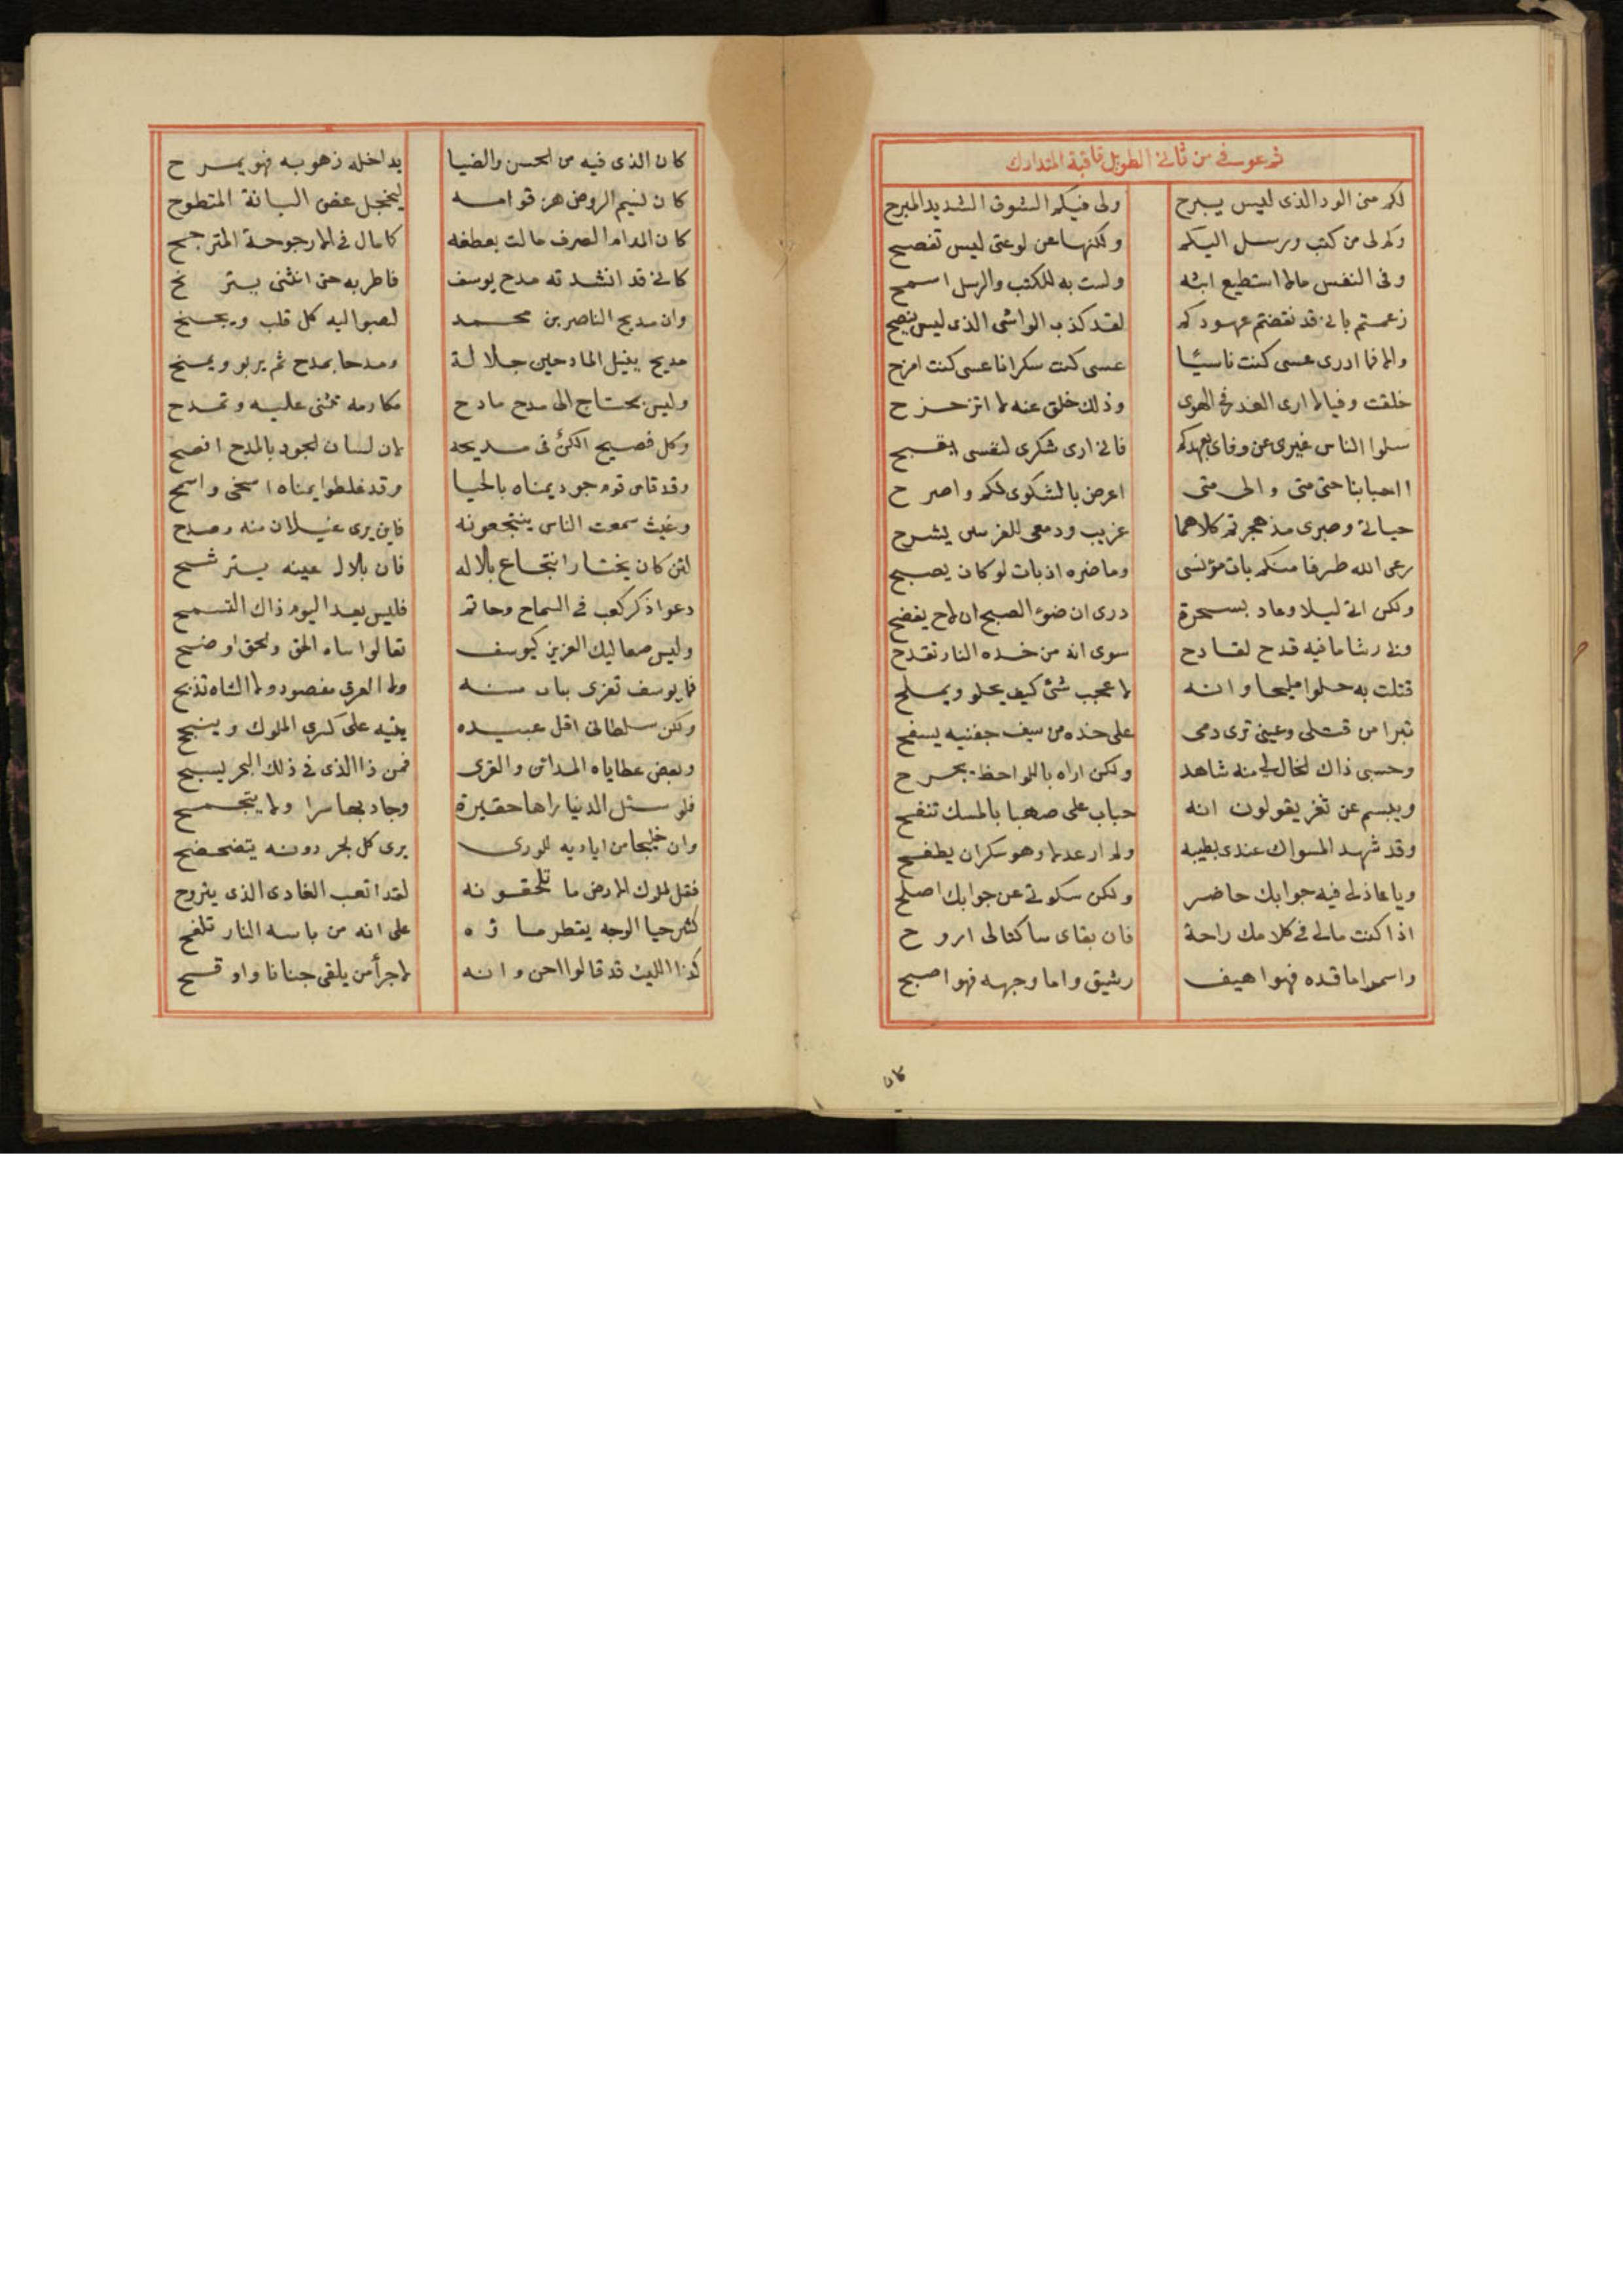 ثم عوفي من ثاني الطويل قافية المتدارك
لكم مني الود الذي ليس يبرح ولى فيكم الشوق الشديد المبرح
وكم لى من كتب ورسل اليكم ولكنها عن لوعتى ليس تفصح
وفى النفس مالا استطيع ابثه ولست به للكتب والرسل اسمح
زعمتم باني قد نقضتم عهودكم لقد كذب الواشى الذى ليس ينصح
والا فما ادرى عسى كنت ناسيًا عسى كنت سكرانا عسى كنت امزح
خلقت وفيا لا ارى الغدر في الهوى وذلك خلق عنه لا اتزحزح
سلوا الناس غيرى عن وفاى بعهدكم فاني ارى شكرى لنفسى يقبح
ااحبابنا حتى متى والى متى اعرض بالشكوى لكم واصرح
حياتي وصبرى مذ هجرتم كلاهما غريب ودمعى للغرس يشرح
رعى الله طرفا منكم بات مؤنسى وما ضره اذ بات لو كان يصبح
ولكن اتى ليلا وعاد بسحرة درى ان ضوء الصبح ان لاح يفضح
ولى رشا ما فيه قدح لقادح سوى انه من خده النار تقدح
قتلت به حلوا مليحا وانه لاعجب شئ كيف يحلو ويملح
تبرا من قتلى وعينى ترى دمى على خده من سيف جفنيه يسفح
وحسبى ذاك الخال لي منه شاهد ولكن اراه باللواحظ يجرح
ويبسم عن ثغر يقولون انه حباب على صهبا بالمسك تنفح
وقد شهد المسواك عندى بطيبه ولم ار عدلا وهو سكران يطفح
ويا عاذلى فيه جوابك حاضر ولكن سكوتي عن جوابك اصلح
اذا كنت مالى في كلامك راحة فان بقاى ساكتا لى اروح
واسمر اما قده فهو اهيف رشيق واما وجهه فهو اصبح
كان
كان الذى فيه من الحسن والضيا يداخله زهو به فهو يمرح
كان نسيم الروض هز قوامه ليخجل غصن البانة المتطوح
كان المدام الصرف مالت بعطفه كما مال في الارجوحة المترجح
كاني قد انشدته مدح يوسف فاطربه حتى انثنى يترنح
وان مديح الناصر بن محمد لصبوا اليه كل قلب ويجنح
مديح ينيل المادحين جلالة ومدحا بمدح ثم يربو ويمنح
وليس بمحتاج الى مدح مادح مكارمه تثنى عليه وتمدح
وكل فصيح الكن فى مديحه لان لسان الجود بالمدح افصح
وقد قاس قوم جود يمناه بالحيا وقد غلطوا يمناه اسخى واسمح
وغيث سمعت الناس ينتجعونه فاين يرى غيلان منه وصدح
لئن كان يختار انتجاع بلاله فان بلالا عينه يترشح
دعوا ذكر كعب في السماح وحاتم فليس يعد اليوم ذاك التسمح
وليس صعاليك العزيز كيوسف تعالوا ساه الحق والحق اوضح
فما يوسف تغزى بناب مسنه ولا العرق مفصود ولا الشاة تذبح
ولكن سلطانى اقل عبيده يتيه على كسرى الملوك وينجح
وبعض عطاياه المدائن والقرى فمن ذا الذى في ذلك البحر يسبح
فلو سئل الدنيا راها حقيرة وجاد بها سرا ولا يتجمح
وان خليجا من اياديه للورى يرى كل بحر دونه يتضحضح
فقل لملوك الارض ما تلحقونه لقد اتعب الغادى الذى يتروح
كثير حيا الوجه يقطر ماؤه على انه من باسه النار تلفح
كذا الليث قد قالوا احن وانه لاجرأ من يلقى جنانا واوقح